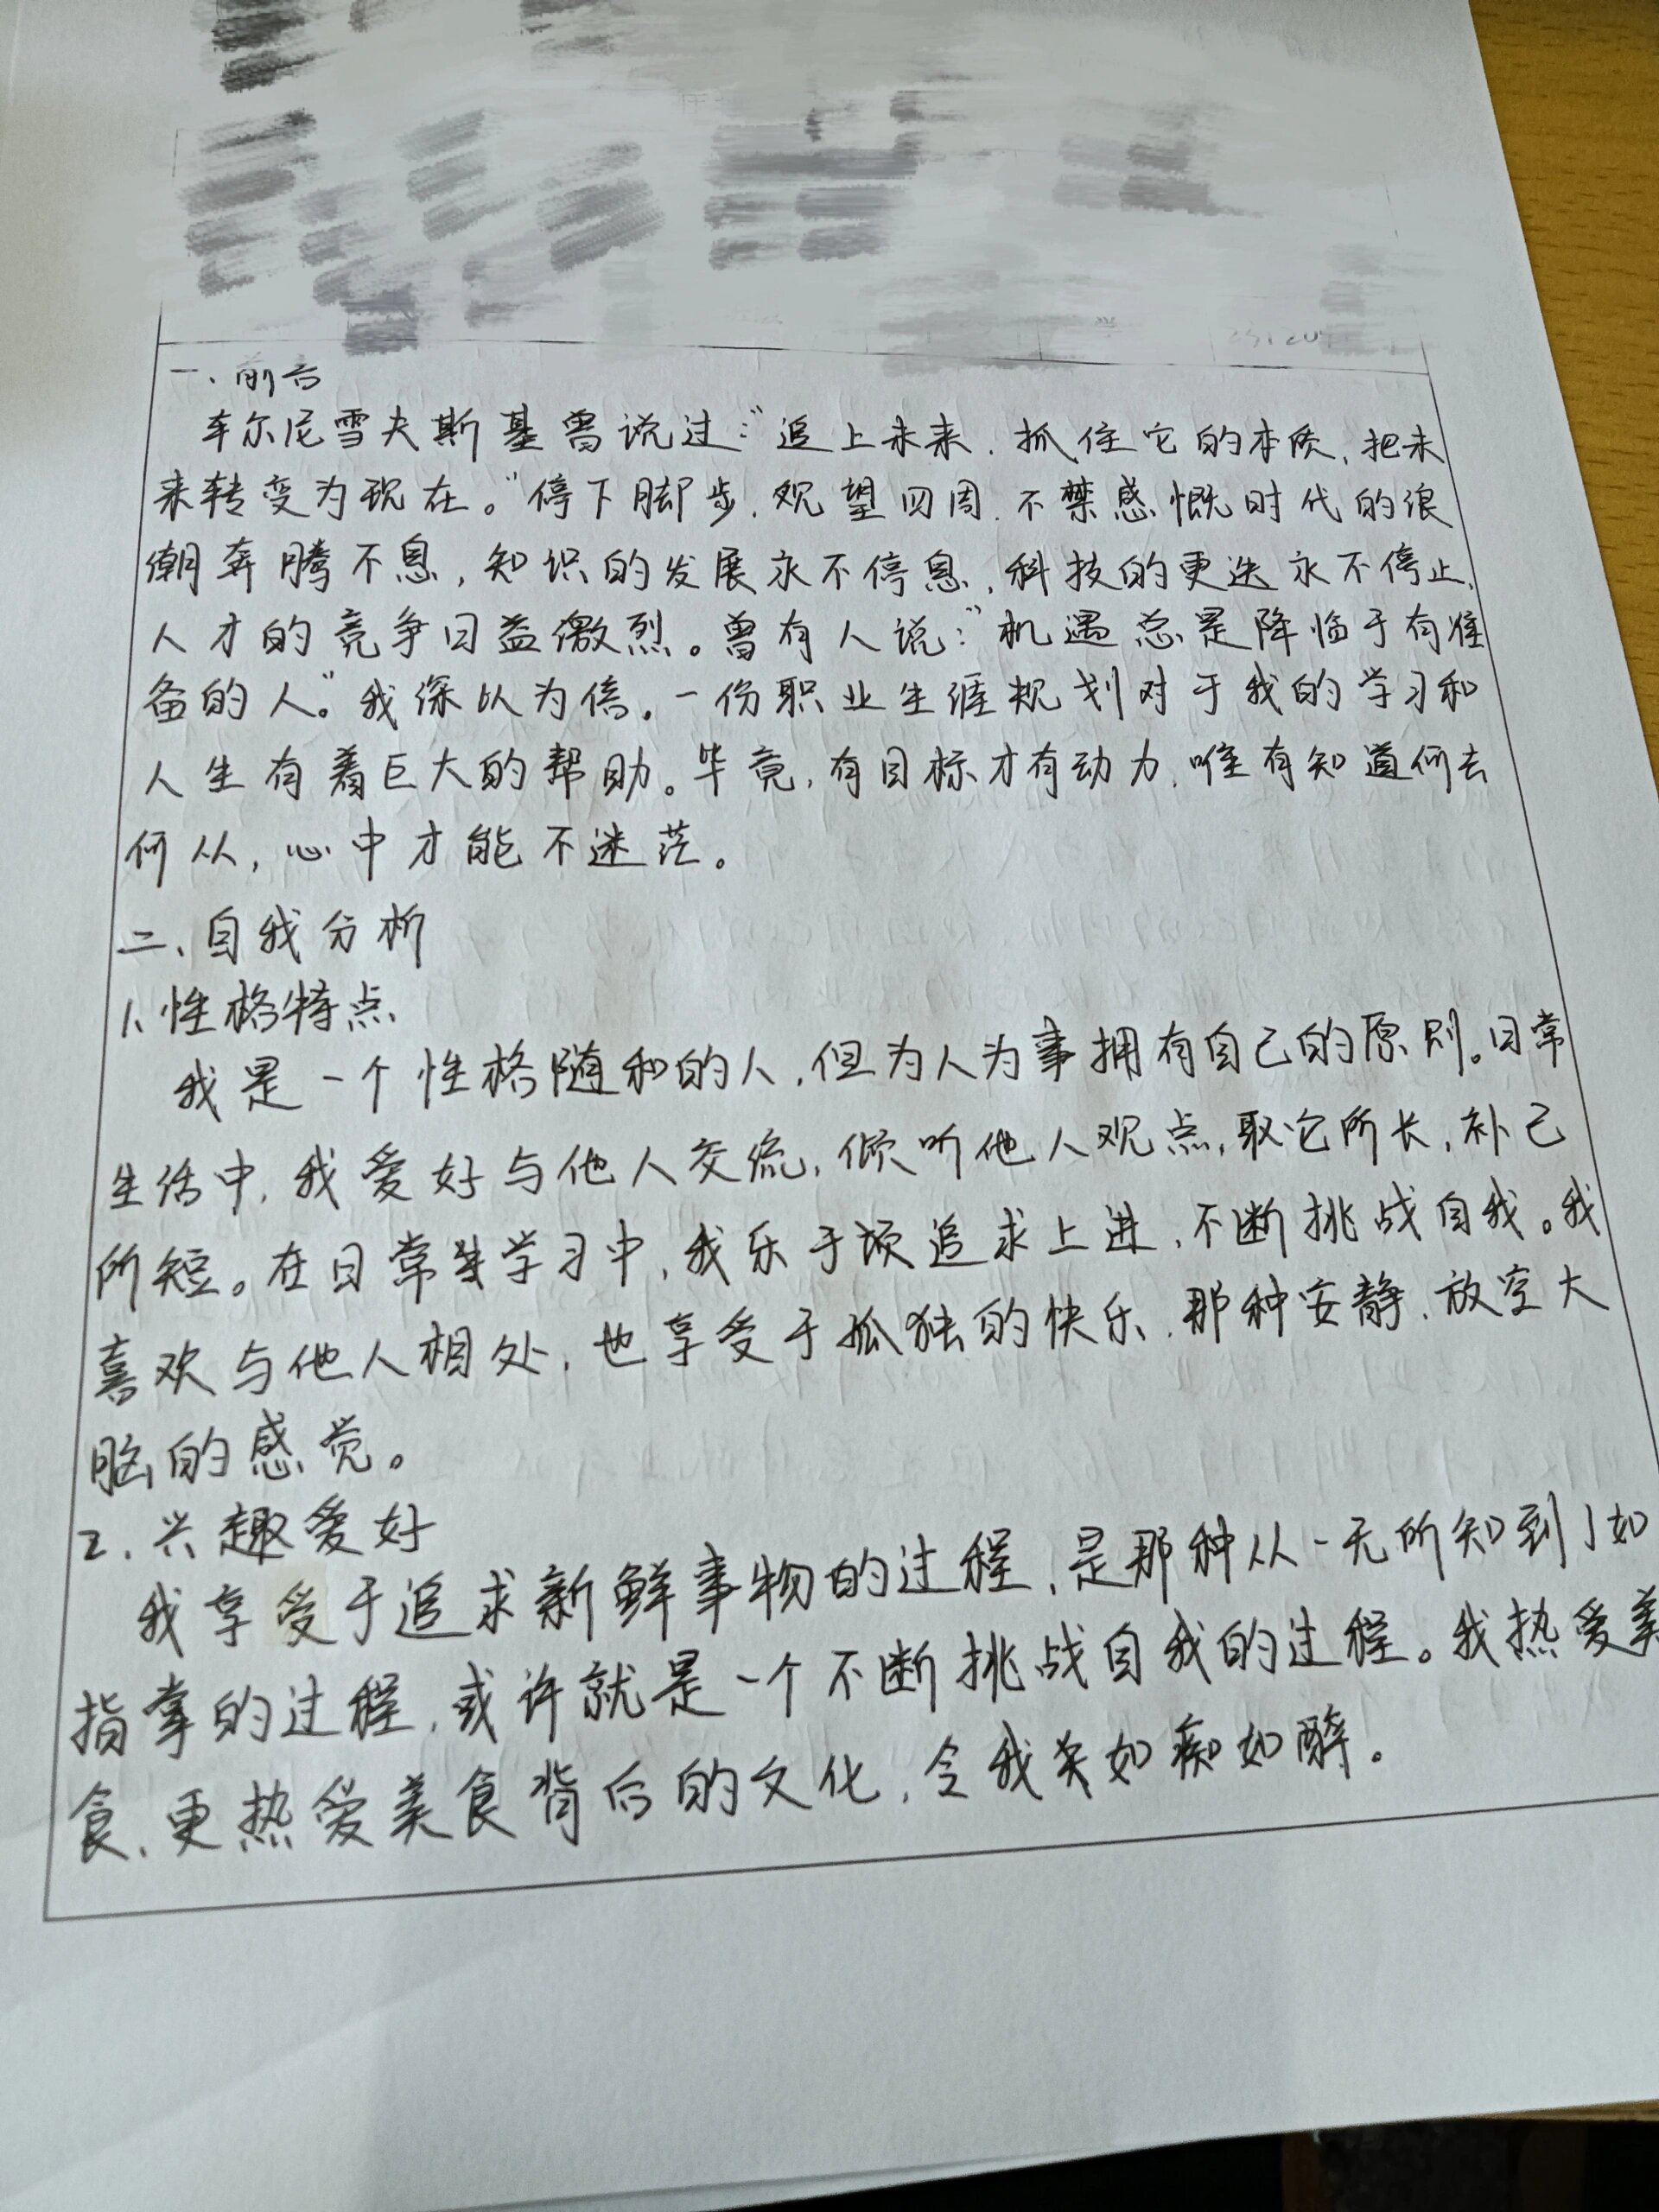 一、前言
车尔尼雪夫斯基曾说过：“追上未来，抓住它的本质，把未
来转变为现在。”停下脚步，观望四周，不禁感慨时代的浪
潮奔腾不息，知识的发展永不停息，科技的更迭永不停止，
人才的竞争日益激烈。曾有人说：“机遇总是降临于有准
备的人”。我深以为信。一份职业生涯规划对于我的学习和
人生有着巨大的帮助。毕竟，有目标才有动力，唯有知道何去
何从，心中才能不迷茫。
二、自我分析
1、性格特点
我是一个性格随和的人，但为人为事拥有自己的原则。日常
生活中，我爱好与他人交流，倾听他人观点，取它所长，补己
所短。在日常学习中，我乐于追求上进，不断挑战自我。我
喜欢与他人相处，也享受于孤独的快乐，那种安静，放空大
脑的感觉。
2、兴趣爱好
我享受于追求新鲜事物的过程，是那种从一无所知到了如
指掌的过程，或许就是一个不断挑战自我的过程。我热爱美
食，更热爱美食背后的文化，令我如痴如醉。